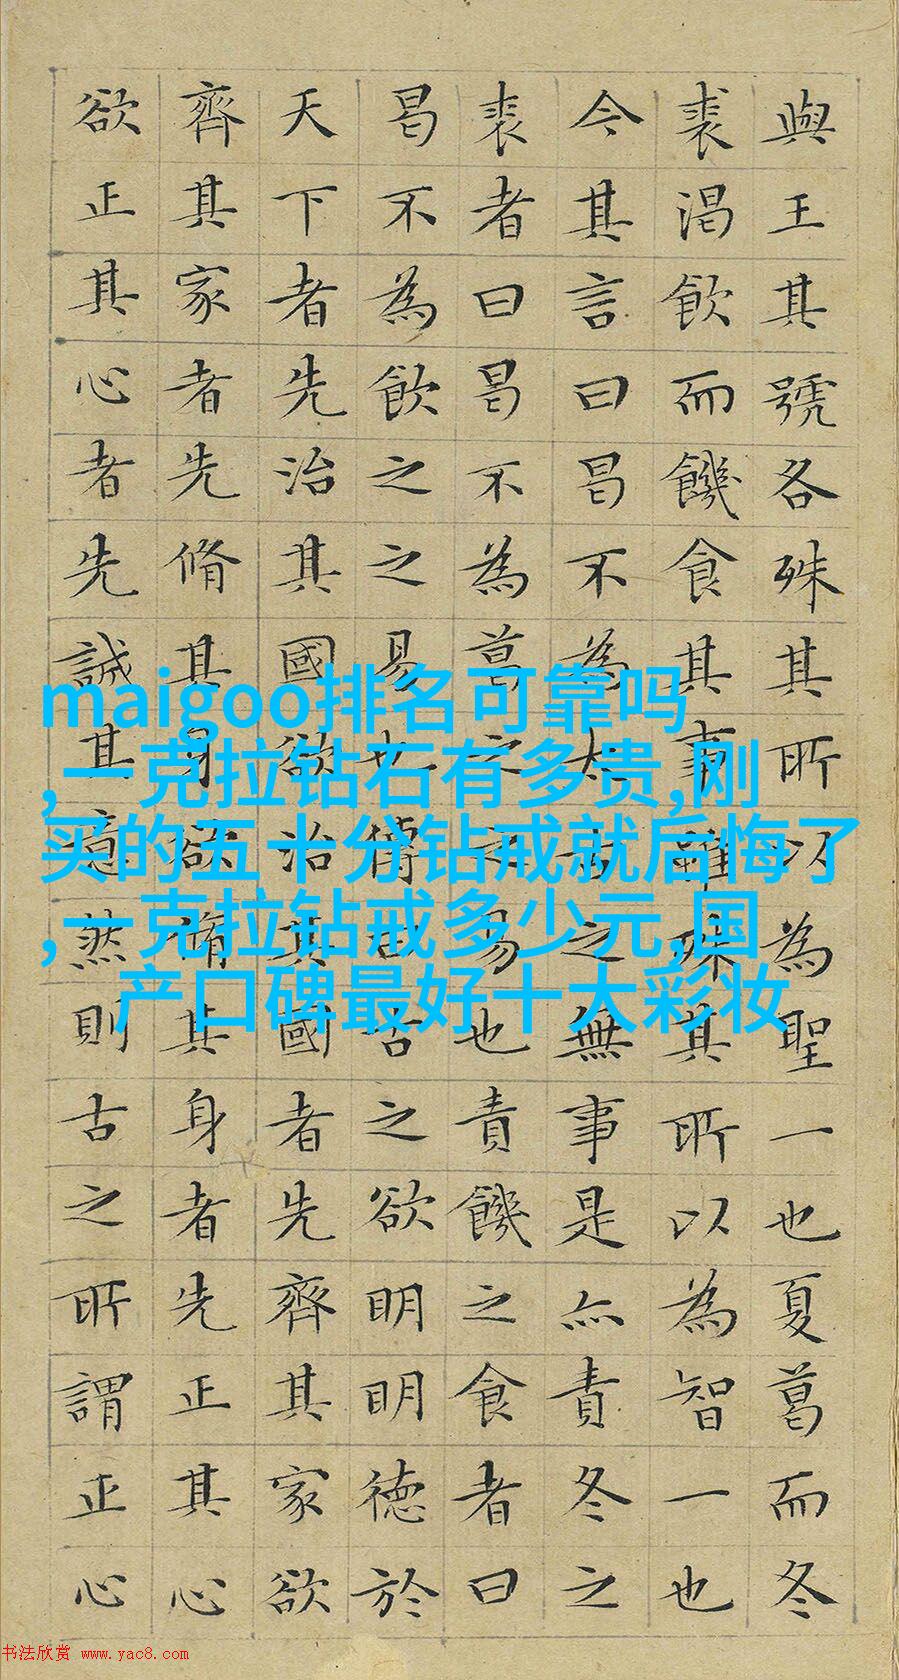 與王其號各殊其所以為聖一也夏葛而冬
裘渴飲而饑食其事雖殊其所以為智一也
今其言曰曷不為太古之無事是亦責冬之
裘者曰曷不為葛之之易也責饑之食者曰
曷不為飲之之易也傳曰古之欲明明德於
天下者先治其國欲治其國者先齊其家欲
齊其家者先脩其身欲脩其身者先正其心
欲正其心者先誠其意然則古之所謂正心
maigoo排名可靠吗
,一克拉钻石有多贵,刚
买的五十分钻戒就后悔了
,一克拉钻戒多少元,国
产口碑最好十大彩妆
书法欣赏 www.yac8.com